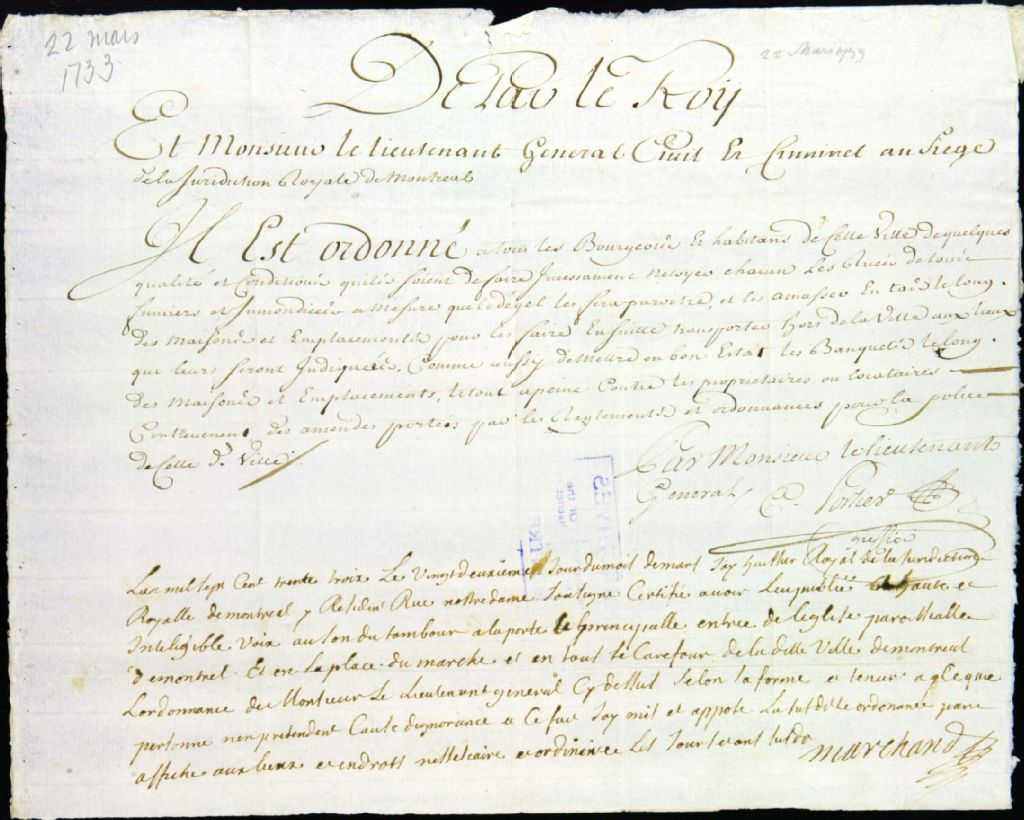 22 mars
1733
22 Mars 1733
De Par le Roy
Et Monsieur le lieutenant General Civil Et Criminel au Siege
de la Juridiction Royale de Montreal
Il Est ordonné a tous les Bourgeois Et habitans de Cette Ville de quelques
qualité et Conditions quils soient de faire Incessament netoyer chacun Les Rues de tous
fumiers et Immondices a mesure que le degel les fera paroitre, et les amasser En tas le long
des Maisons et Emplacements pour les faire Ensuitte transporter hors de la Ville aux lieux
qui leurs seront Indiquees, Comme aussy de mettre en bon Estat les Banquettes le long
des Maisons et Emplacements, le tout a peine Contre les proprietaires ou locataires
Contrevenens des amendes portées par les Reglements et ordonnances pour la police
de Cette d. Ville
Par Monsieur le lieutenant
General C. Porlier
greffier
Lan mil sept Cent trente trois Le Vingt deuxieme Jour du mois de mars Jay huissier Royal de la Jurediction
Royalle de montreel y Resident Rue nottre dame Sousigne Certifie avoir Leu publié a haute et
Inteligible Voix au son du tambour a la porte principalle entree de leglise paroissialle
de montrel Et en La place du marche et en tout le Carefour de la ditte Ville de montreal
Lordonnance de Monsieur Le Lieutenant general Cy dessus Selon sa forme et teneur a ce que
personne nen pretendent Cause dignorance et Ce fait Jay mis et appose La susditte ordonance par
affiche aux lieux et endrois nessesaire et ordinaire Les Jour et ant susdt
Marchand